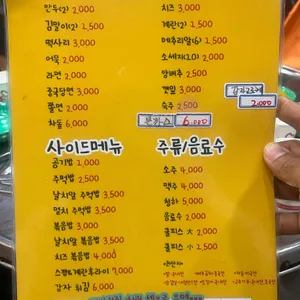 만두(2) 2,000
김말이(2) 2,500
떡사리 3,000
어묵 2,000
라면 2,000
중국당면 3,000
쫄면 2,000
차돌 6,000
치즈 3,000
계란(2) 2,500
메추리알(6) 2,500
소세지(20) 2,000
양배추 2,500
깻잎 3,000
숙주 2,500
돈까스 6,000
2,000
사이드메뉴
공기밥 1,000
주먹밥 2,500
날치알 주먹밥 3,500
멸치 주먹밥 3,500
볶음밥 3,000
날치알 볶음밥 3,500
치즈 볶음밥 4,000
스팸&계란후라이 7,000
감자 튀김 6,000
주류/음료수
소주 4,000
맥주 4,000
청하 5,000
음료수 2,000
쿨피스 大 2,000
쿨피스 小 2,500